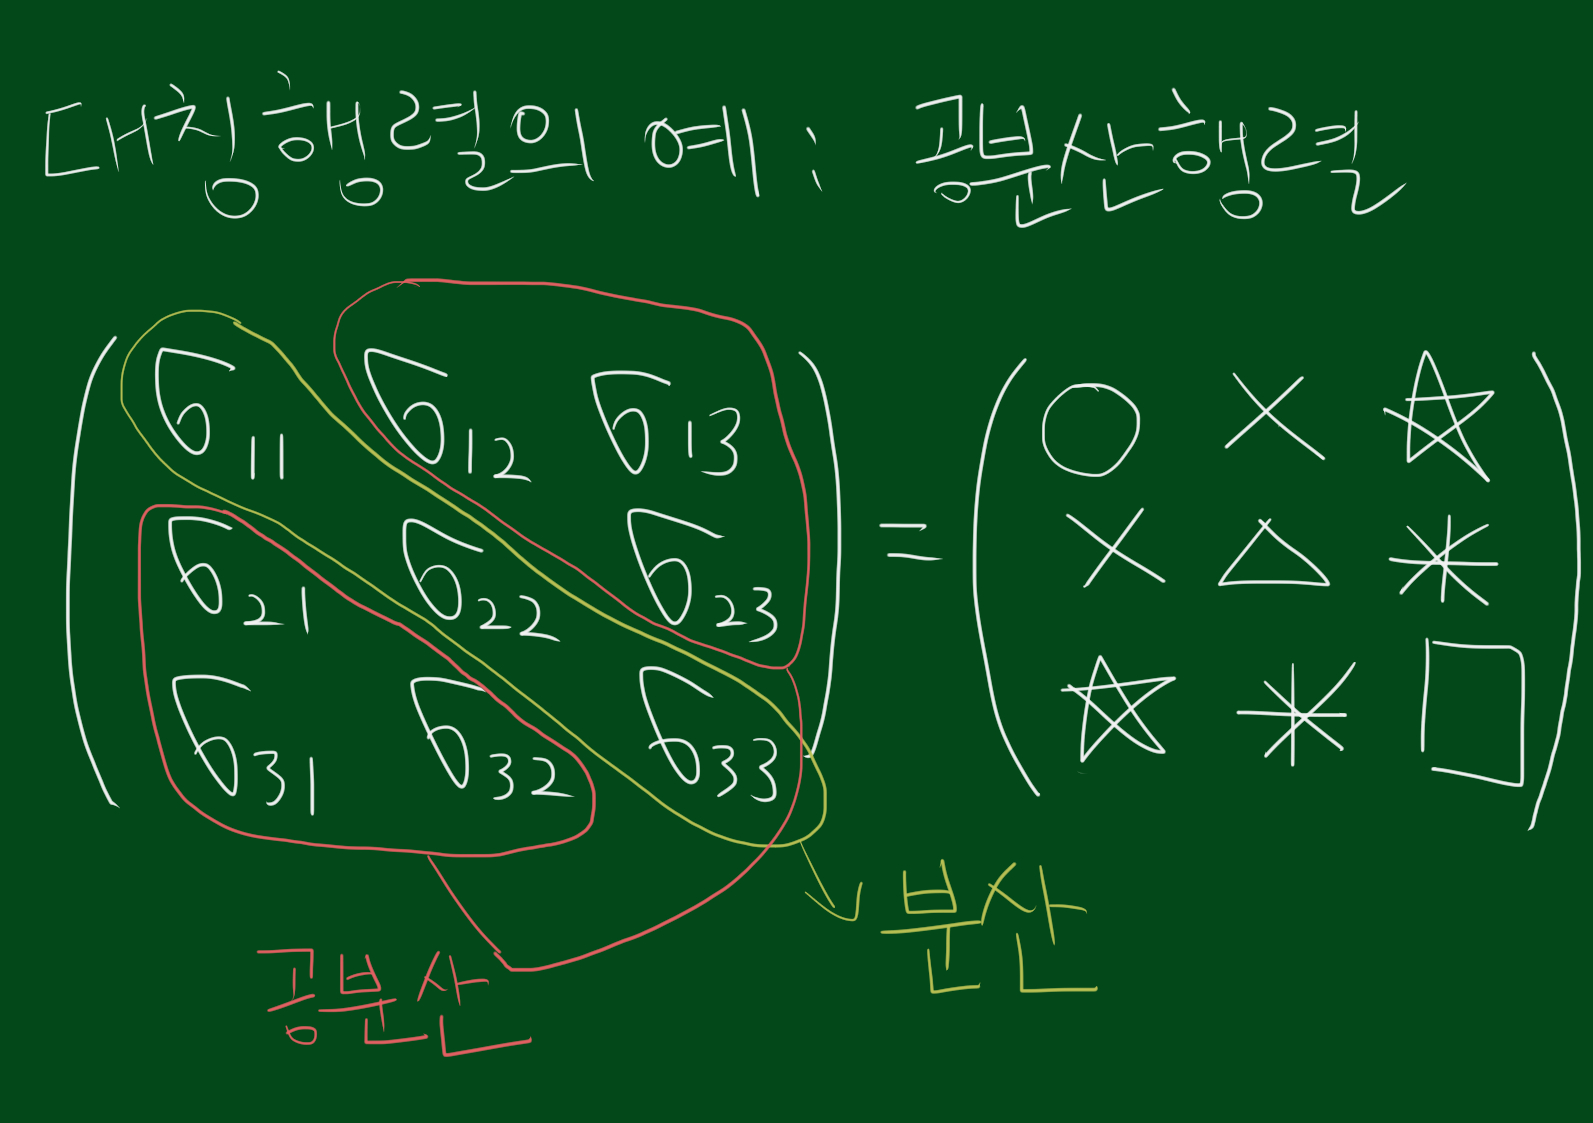 대칭행렬의 예: 공분산행렬
σ11 σ12 σ13
σ21 σ22 σ23
σ31 σ32 σ33
=
부산
공분산